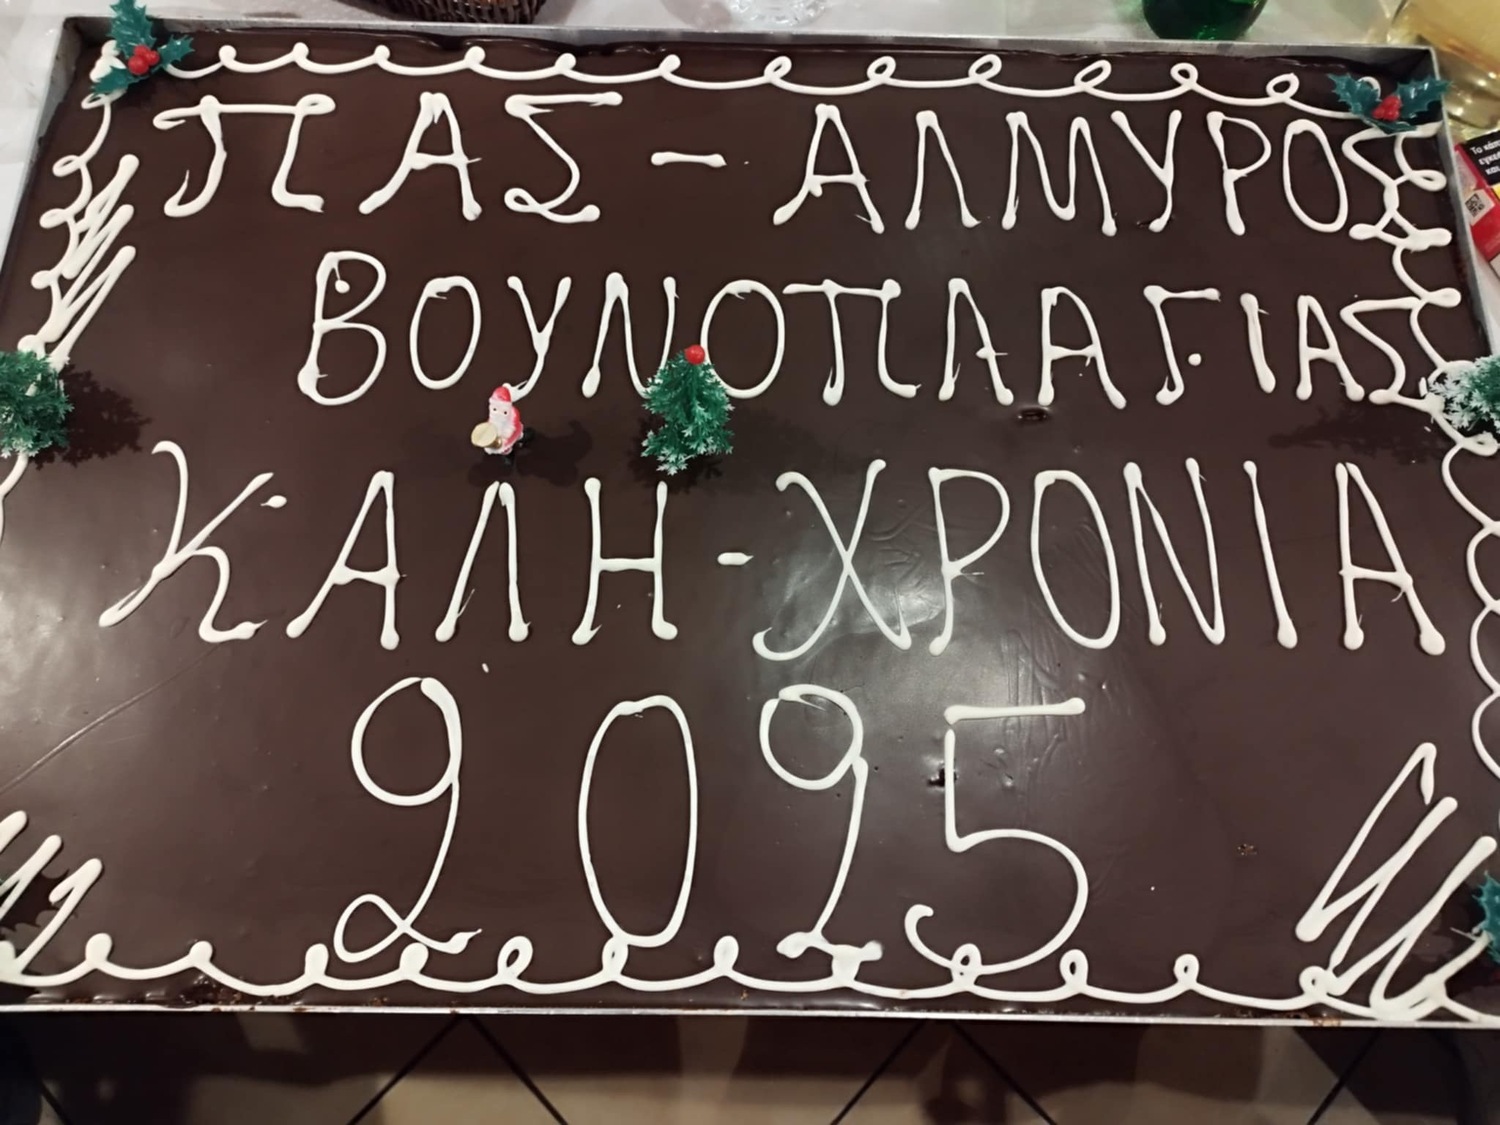 ΠΑΣ - ΑΛΜΥΡΟΣ
ΒΟΥΝΟΠΛΑΓΙΑΣ
ΚΑΛΗ - ΧΡΟΝΙΑ
2025